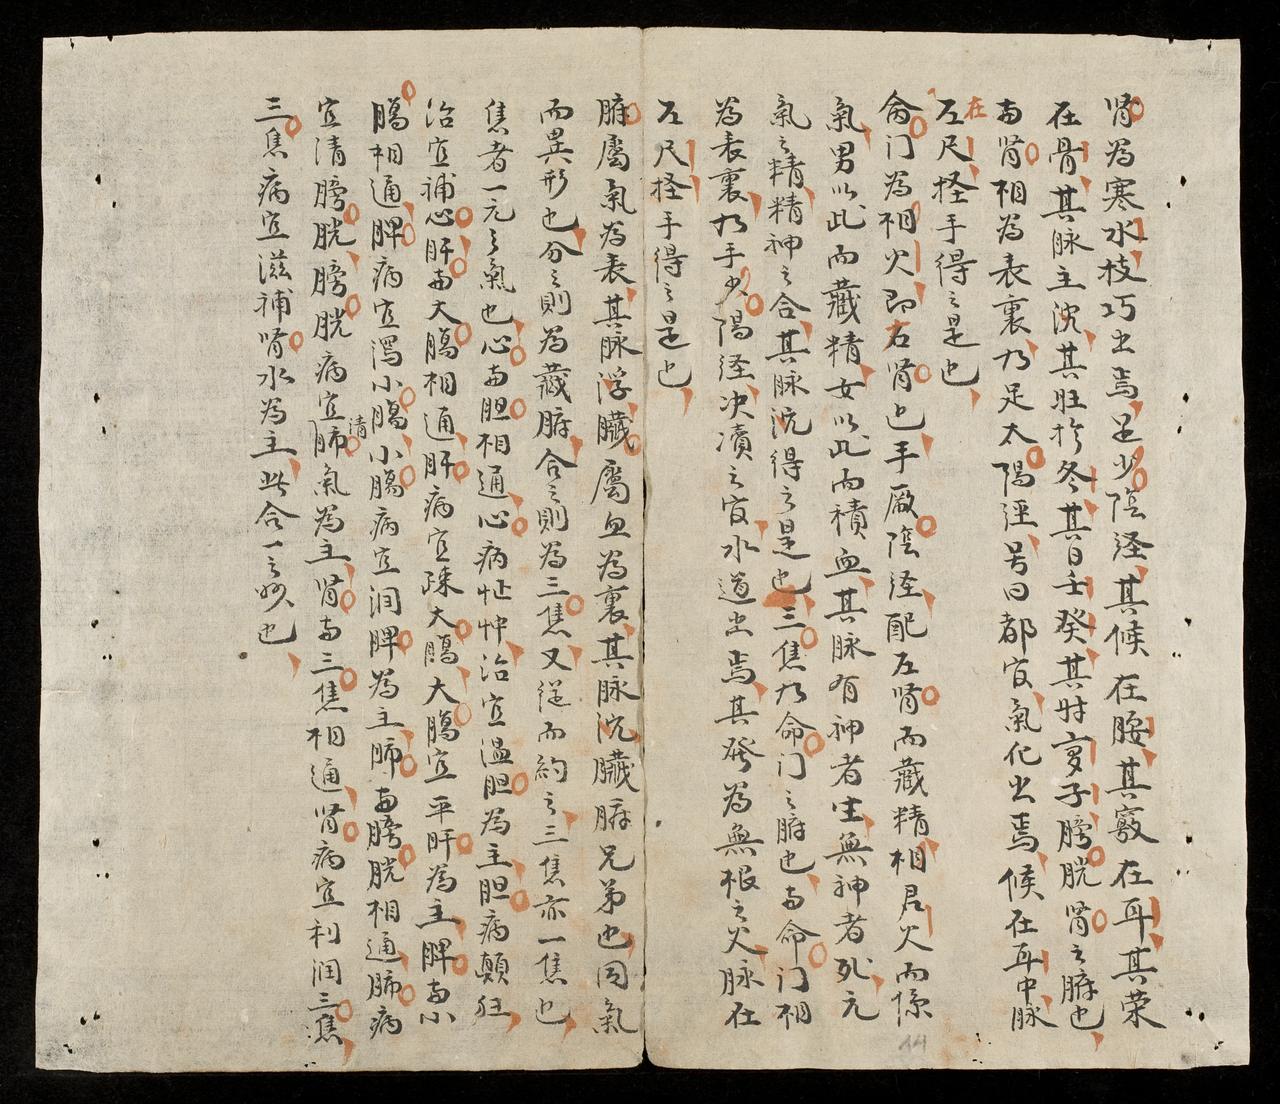 腎為寒水技巧出焉足少陰经其候在腰其竅在耳其荣
在骨其脉主沈其旺於冬其日壬癸其时亥子膀胱腎之腑也
与腎相為表裏乃足太陽涇号曰都官氣化出焉候在耳中脉
在左尺按手得之是也
命门為相火即右腎也手厥陰经配左腎而藏精相君火而係
氣男以此而藏精女以此而積血其脉有神者生無神者死元
氣之精精神之合其脉沉得之是也三焦乃命门之腑也与命门相
為表裏乃手少陽经决瀆之官水道出焉其發為無根之火脉在
左尺按手得之是也
腑屬氣為表其脉浮臟屬血為裏其脉沉臟腑兄弟也因氣
而異形也分之則為藏腑合之則為三焦又從而約之三焦亦一焦也
焦者一元之氣也心与胆相通心病怔忡治宜温胆為主胆病顛狂
治宜補心肝与大腸相通肝病宜疎大腸大腸宜平肝為主脾与小
腸相通脾病宜瀉小腸小腸病宜润脾為主肺与膀胱相通肺病
宜清膀胱膀胱病宜清肺氣為主腎与三焦相通腎病宜利润三焦
三焦病宜滋補腎水為主此合一之妙也
44